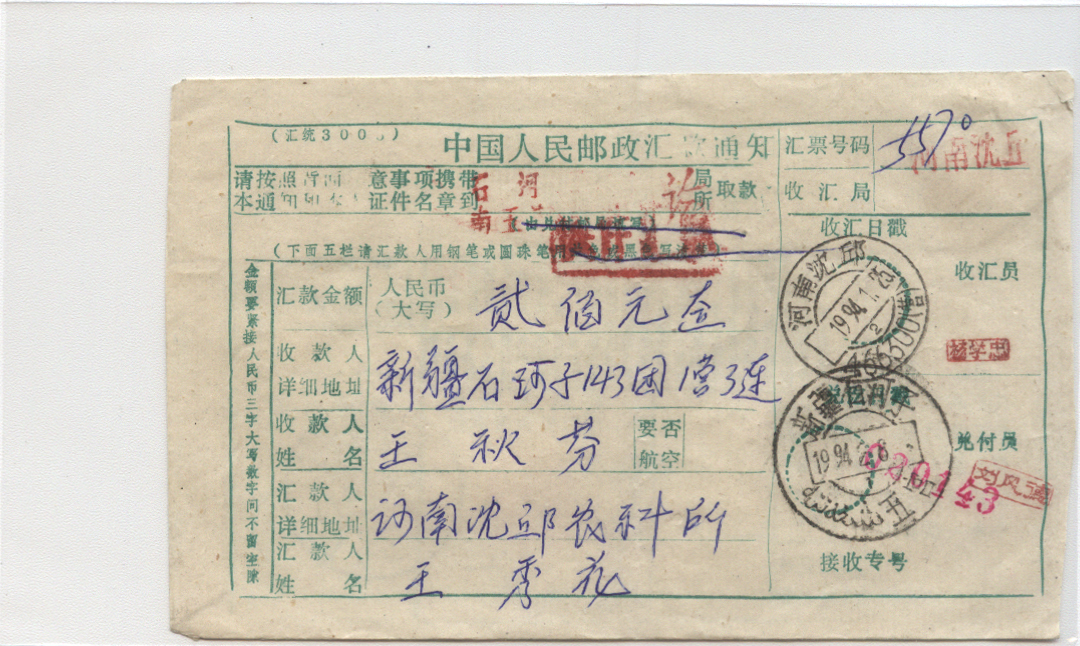 (汇统300)
中国人民邮政汇款通知
汇票号码
5570
河南沈丘
请按照背面 意事项携带
本通知 证件名章到
石 河
南五
局
所
取款
收汇局
(下面五栏请汇款人用钢笔或圆珠笔
收汇日戳
金额要紧接人民币三字大写数字间不留空隙
汇款金额
人民币
(大写)
贰佰元整
河南沈邱
1994.1.25
466300
收汇员
杨学忠
收款人
详细地址
新疆石河子143团1营3连
兑付日戳
收款人
姓名
王秋芬
要否
航空
新疆石河子
1994
五
029143
兑付员
刘凤
汇款人
详细地址
河南沈邱农科所
汇款人
姓名
王秀花
接收专号